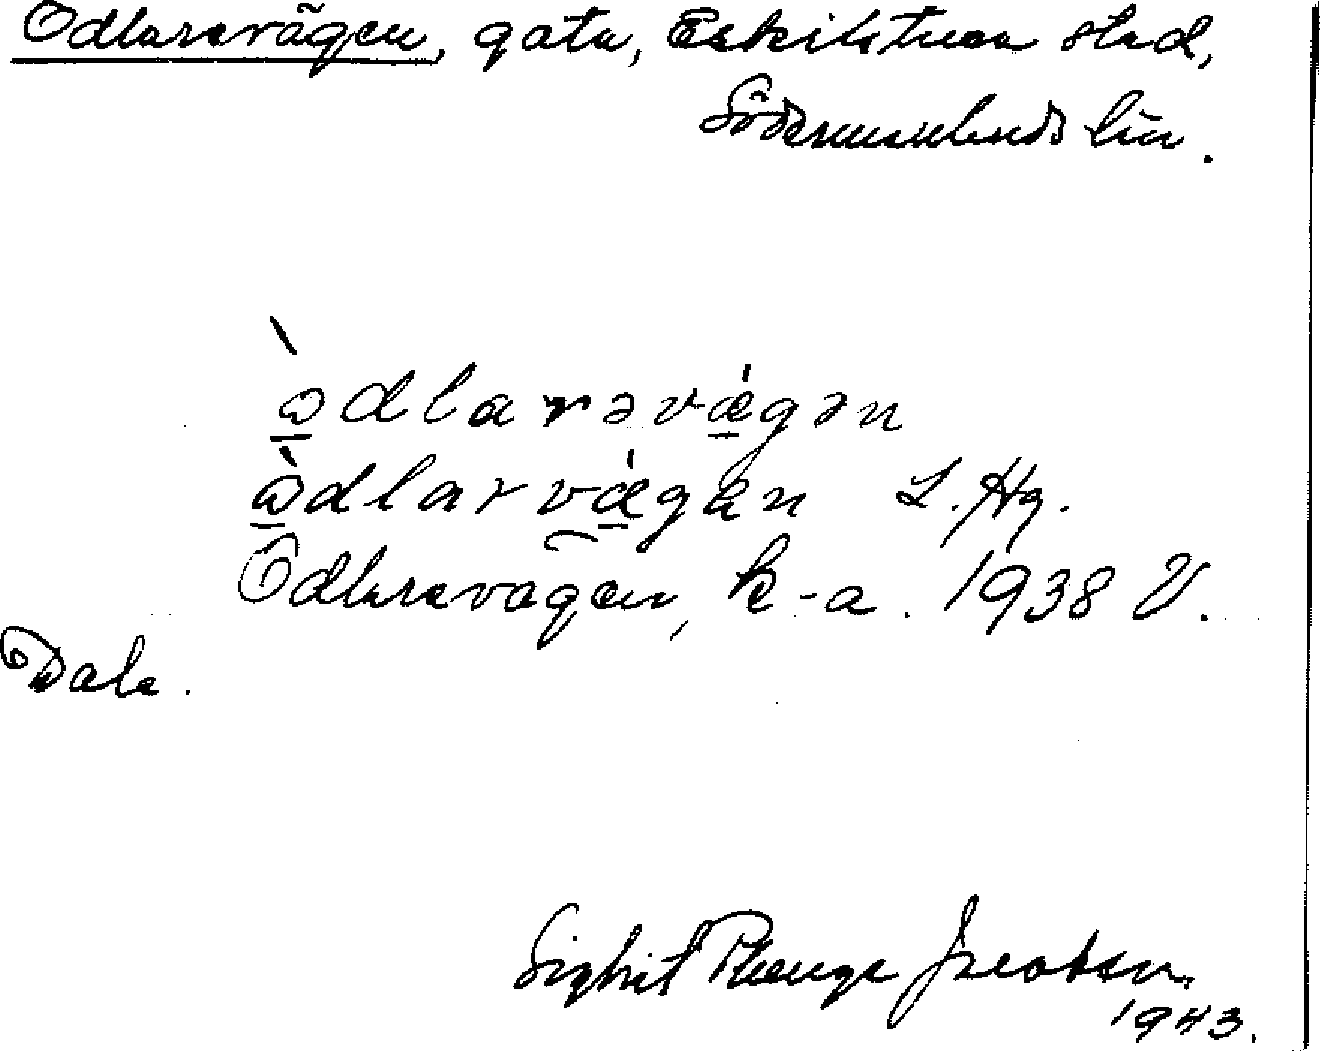 Odlarevägen, gata, Eskilstuna stad,
Södermanlands län.
ὼdlarəvǽgən
ὼdlarvǽgən L. Hg.
Odlarevägen, k-a. 1938 V.
Dala.
Sigbrit Plænge Jacobson
1943.